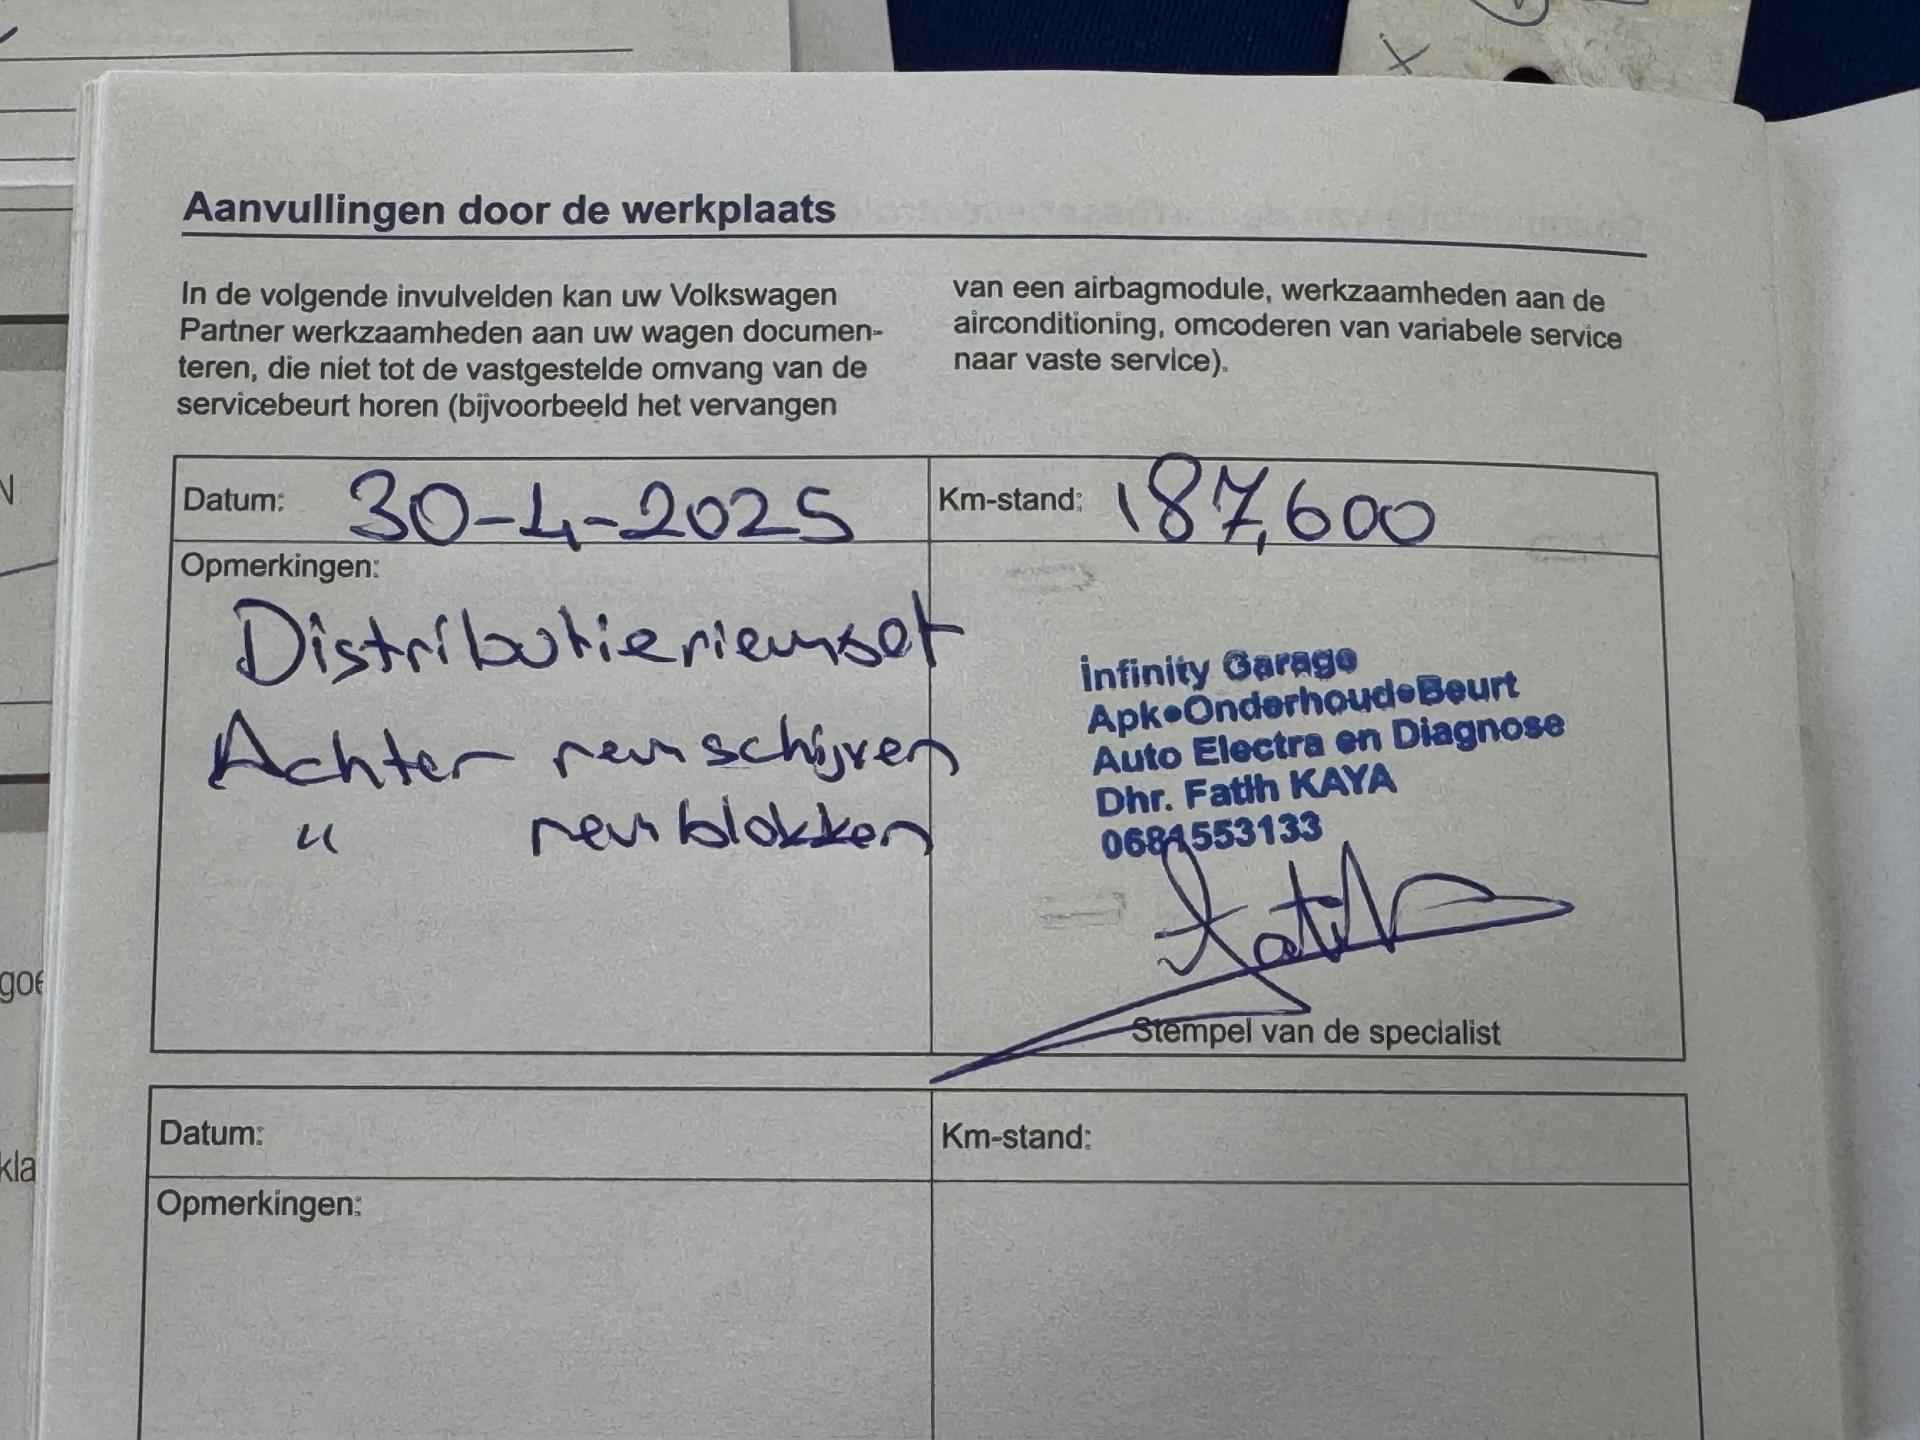 Aanvullingen door de werkplaats
In de volgende invulvelden kan uw Volkswagen
Partner werkzaamheden aan uw wagen documen-
teren, die niet tot de vastgestelde omvang van de
servicebeurt horen (bijvoorbeeld het vervangen
van een airbagmodule, werkzaamheden aan de
airconditioning, omcoderen van variabele service
naar vaste service).
Datum: 30-4-2025
Km-stand: 187,600
Opmerkingen:
Distributieriemset
Achter remschijven
" remblokken
infinity Garage
Apk•Onderhoud•Beurt
Auto Electra en Diagnose
Dhr. Fatih KAYA
0681553133
Fatih
Stempel van de specialist
Datum:
Km-stand:
Opmerkingen:
N
goe
kla
x